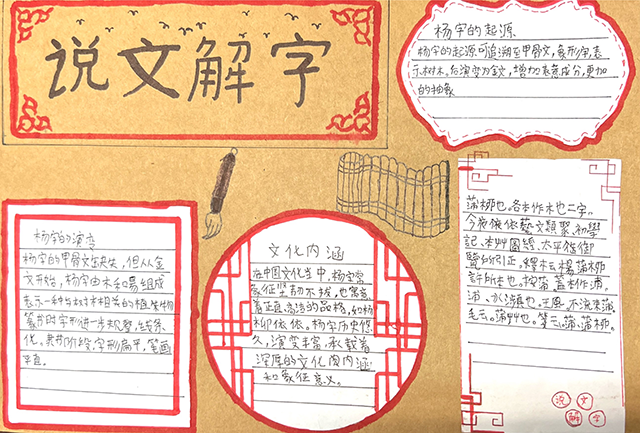 说文解字
杨字的起源
杨字的起源可追溯至甲骨文，象形字，表
示树木。后演变为金文，增加表意成分，更加
的抽象
杨字的演变
杨字的甲骨文缺失，但从金
文开始，杨字由木和昜组成
表示一种与树木相关的植
篆书时字形进一步规整，线条
化。隶书阶段字形扁平，笔画
平直。
文化内涵
在中国文化当中，杨字常
象征坚韧不拔，也寓意
着正直高洁的品格，如杨
柳依依。杨字历史悠
久，演变丰富，承载着
深厚的文化内涵
和象征意义。
蒲柳也。各本作木也二字。
今依藝文類聚、初學
記、本艸圖經、太平御
覽所引正。釋木云。楊、蒲柳
許所本也。按蒲蓋本作浦
浦、水瀕也。王風。不流束蒲
毛云。蒲艸也。箋云。蒲、蒲柳。
说文
解字